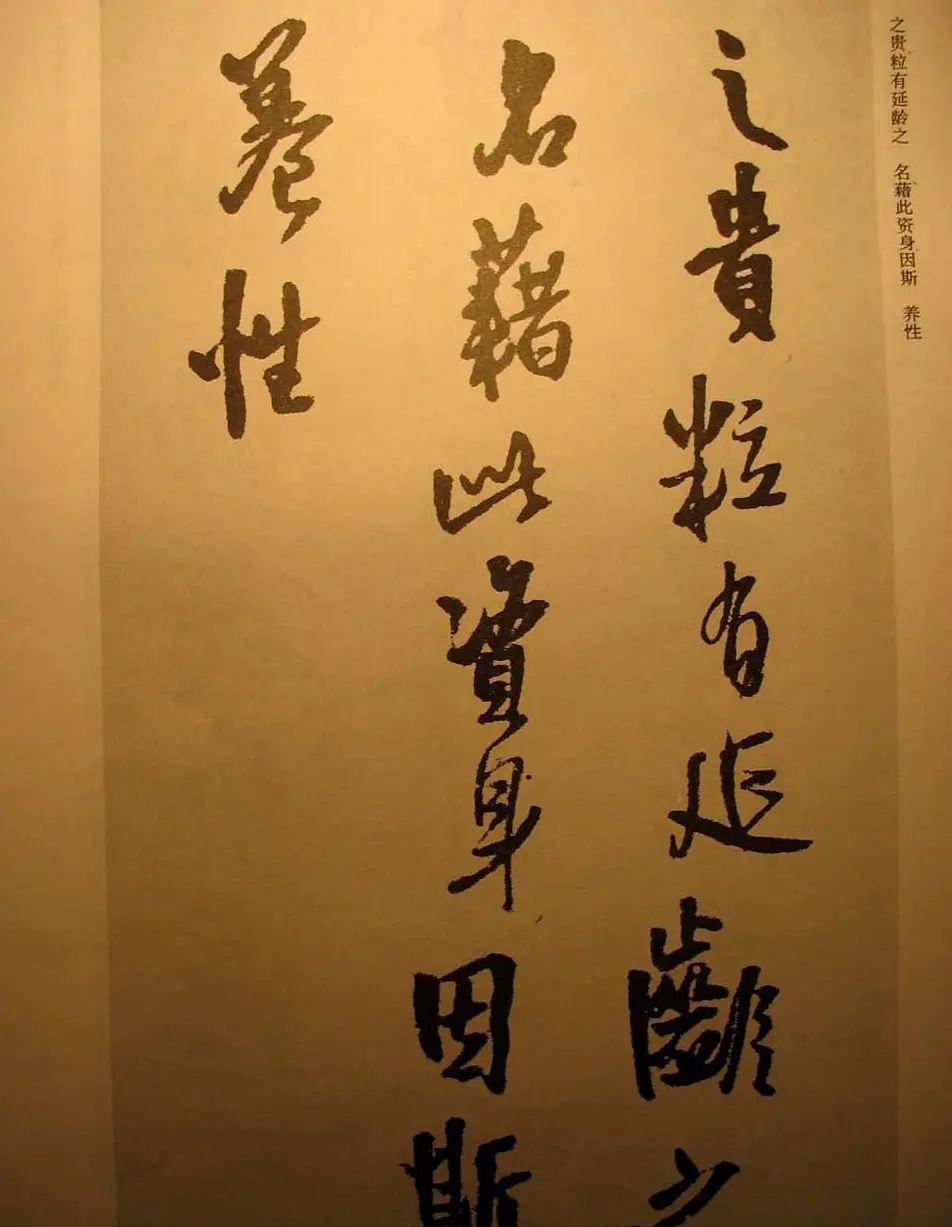 之贵粒有延龄之 名藉此资身因斯 养性
之貴粒有延齡之
名藉此資身因斯
養性